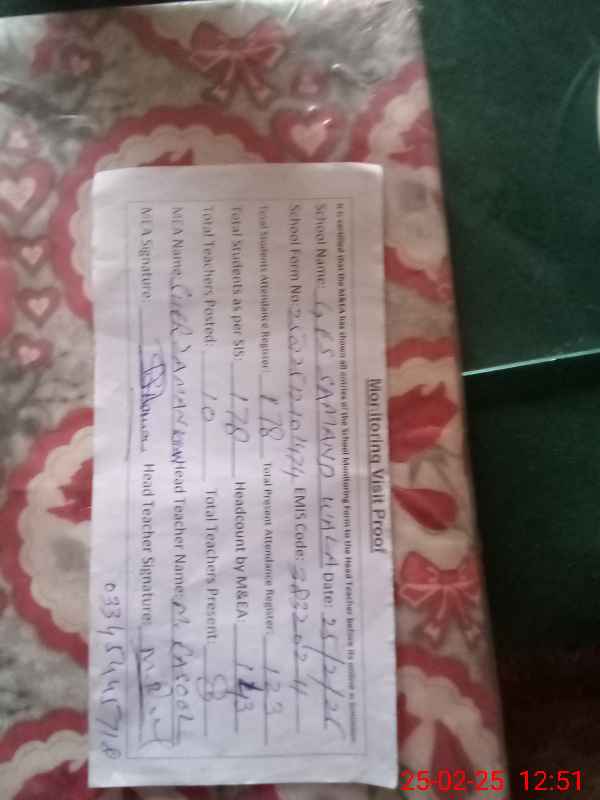 Monitoring Visit Proof
It is certified that the M&EA has shown all entries of the School Monitoring Form to the Head Teacher before its online submission
School Name: GPS SAMAND WALA Date: 25/2/25
School Form No: EMIS Code:
Total Students Attendance Register: 178 Total Present Attendance Register: 123
Total Students as per SIS: 178 Headcount by M&EA:
Total Teachers Posted: 10 Total Teachers Present: 8
MEA Name: Head Teacher Name: M. RASOOL
MEA Signature: Head Teacher Signature:
03345445718
25-02-25 12:51